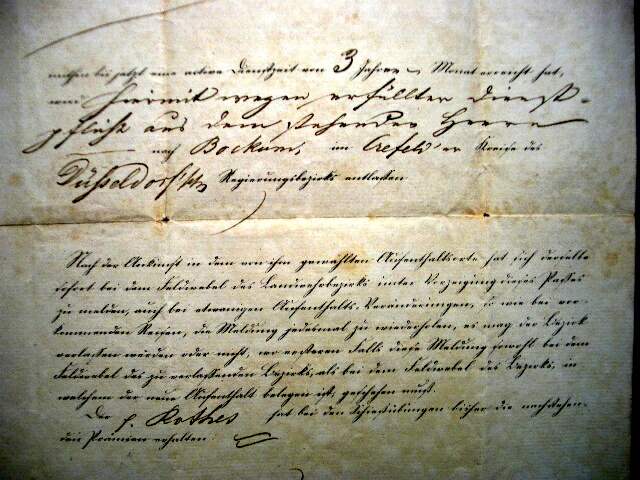 welcher bis jetzt eine active Dienstzeit von 3 Jahren – Monat erreicht hat,
wird hiermit wegen erfüllter Dienst-
pflicht aus dem stehenden Heere
nach Bockum, im Crefeld'er Kreise des
Düsseldorf'schen Regierungsbezirks entlassen
Nach der Ankunft in dem von ihm gewählten Aufenthaltsorte hat sich derselbe
sofort bei dem Feldwebel des Landwehrbezirks unter Vorzeigung dieses Passes
zu melden, auch bei etwanigen Aufenthalts-Veränderungen, so wie bei vor-
kommenden Reisen, die Meldung jedesmal zu wiederholen, es mag der Bezirk
verlassen werden oder nicht, wo ersteren Falls diese Meldung sowohl bei dem
Feldwebel des zu verlassenden Bezirks, als bei dem Feldwebel des Bezirks, in
welchem der neue Aufenthalt belegen ist, geschehen muß.
Der p. Rothes hat bei den Schießübungen bisher die nachstehen-
den Prämien erhalten: